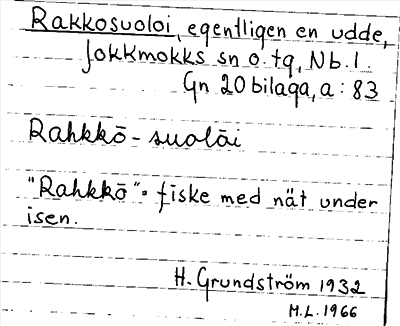 Rakkosuoloi, egentligen en udde,
Jokkmokks sn o. tg, Nb. l.
Gn 20 bilaga, a : 83
Rahkkō - suolāi
"Rahkkō" = fiske med nät under
isen.
H. Grundström 1932
M.L. 1966